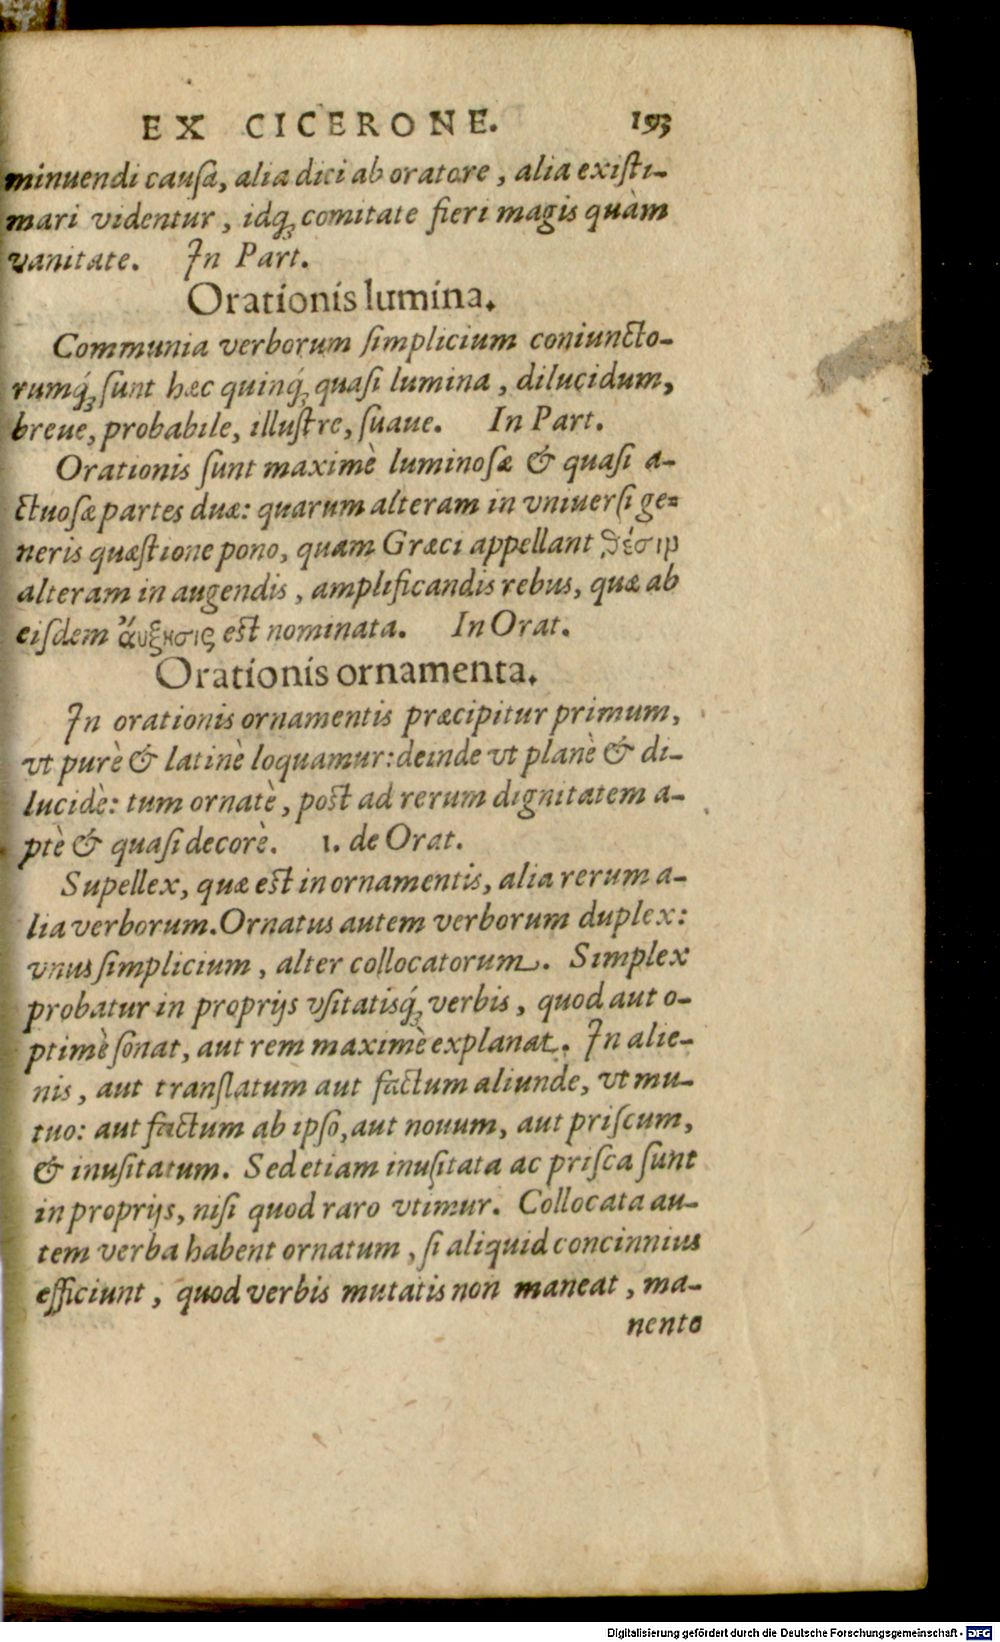 EX CICERONE. 193
minuendi causa, alia dici ab oratore, alia existi-
mari videntur, idq́; comitate fieri magis quàm
vanitate. In Part.
Orationis lumina.
Communia verborum simplicium coniuncto-
rumq́; sunt hæc quinq́; quasi lumina, dilucidum,
breue, probabile, illustre, suaue. In Part.
Orationis sunt maximè luminosæ & quasi a-
ctuosæ partes duæ: quarum alteram in vniuersi ge-
neris quæstione pono, quam Græci appellant θέσιν
alteram in augendis, amplificandis rebus, quæ ab
eisdem ἄυξησις est nominata. In Orat.
Orationis ornamenta.
In orationis ornamentis præcipitur primum,
vt purè & latinè loquamur: deinde vt planè & di-
lucidè: tum ornatè, post ad rerum dignitatem a-
ptè & quasi decorè. 1. de Orat.
Supellex, quæ est in ornamentis, alia rerum a-
lia verborum. Ornatus autem verborum duplex:
vnus simplicium, alter collocatorum. Simplex
probatur in proprijs vsitatisq́; verbis, quod aut o-
ptimè sonat, aut rem maximè explanat. In alie-
nis, aut translatum aut factum aliunde, vt mu-
tuo: aut factum ab ipso, aut nouum, aut priscum,
& inusitatum. Sed etiam inusitata ac prisca sunt
in proprijs, nisi quod raro vtimur. Collocata au-
tem verba habent ornatum, si aliquid concinnius
efficiunt, quod verbis mutatis non maneat, ma-
nente
Digitalisierung gefördert durch die Deutsche Forschungsgemeinschaft - DFG